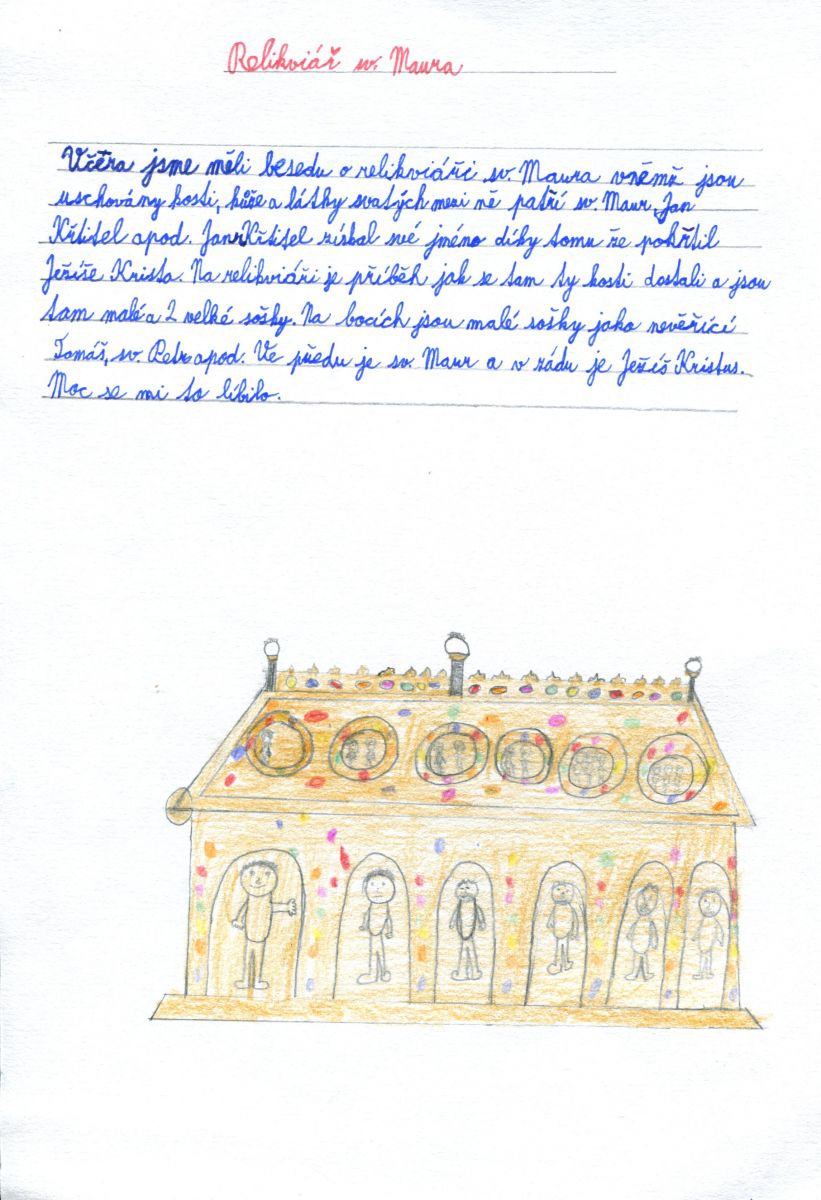 Relikviář sv. Maura
Včera jsme měli besedu o relikviáři sv. Maura vněmž jsou
uschovány kosti, kůže a látky svatých mezi ně patří sv. Maur, Jan
Křtitel apod. Jan Křtitel získal své jméno díky tomu že pokřtil
Ježíše Krista. Na relikviáři je příběh jak se tam ty kosti dostali a jsou
tam malé a 2 velké sošky. Na bocích jsou malé sošky jako nevěřící
Tomáš, sv. Petr apod. Ve předu je sv. Maur a v zádu je Ježíš Kristus.
Moc se mi to líbilo.